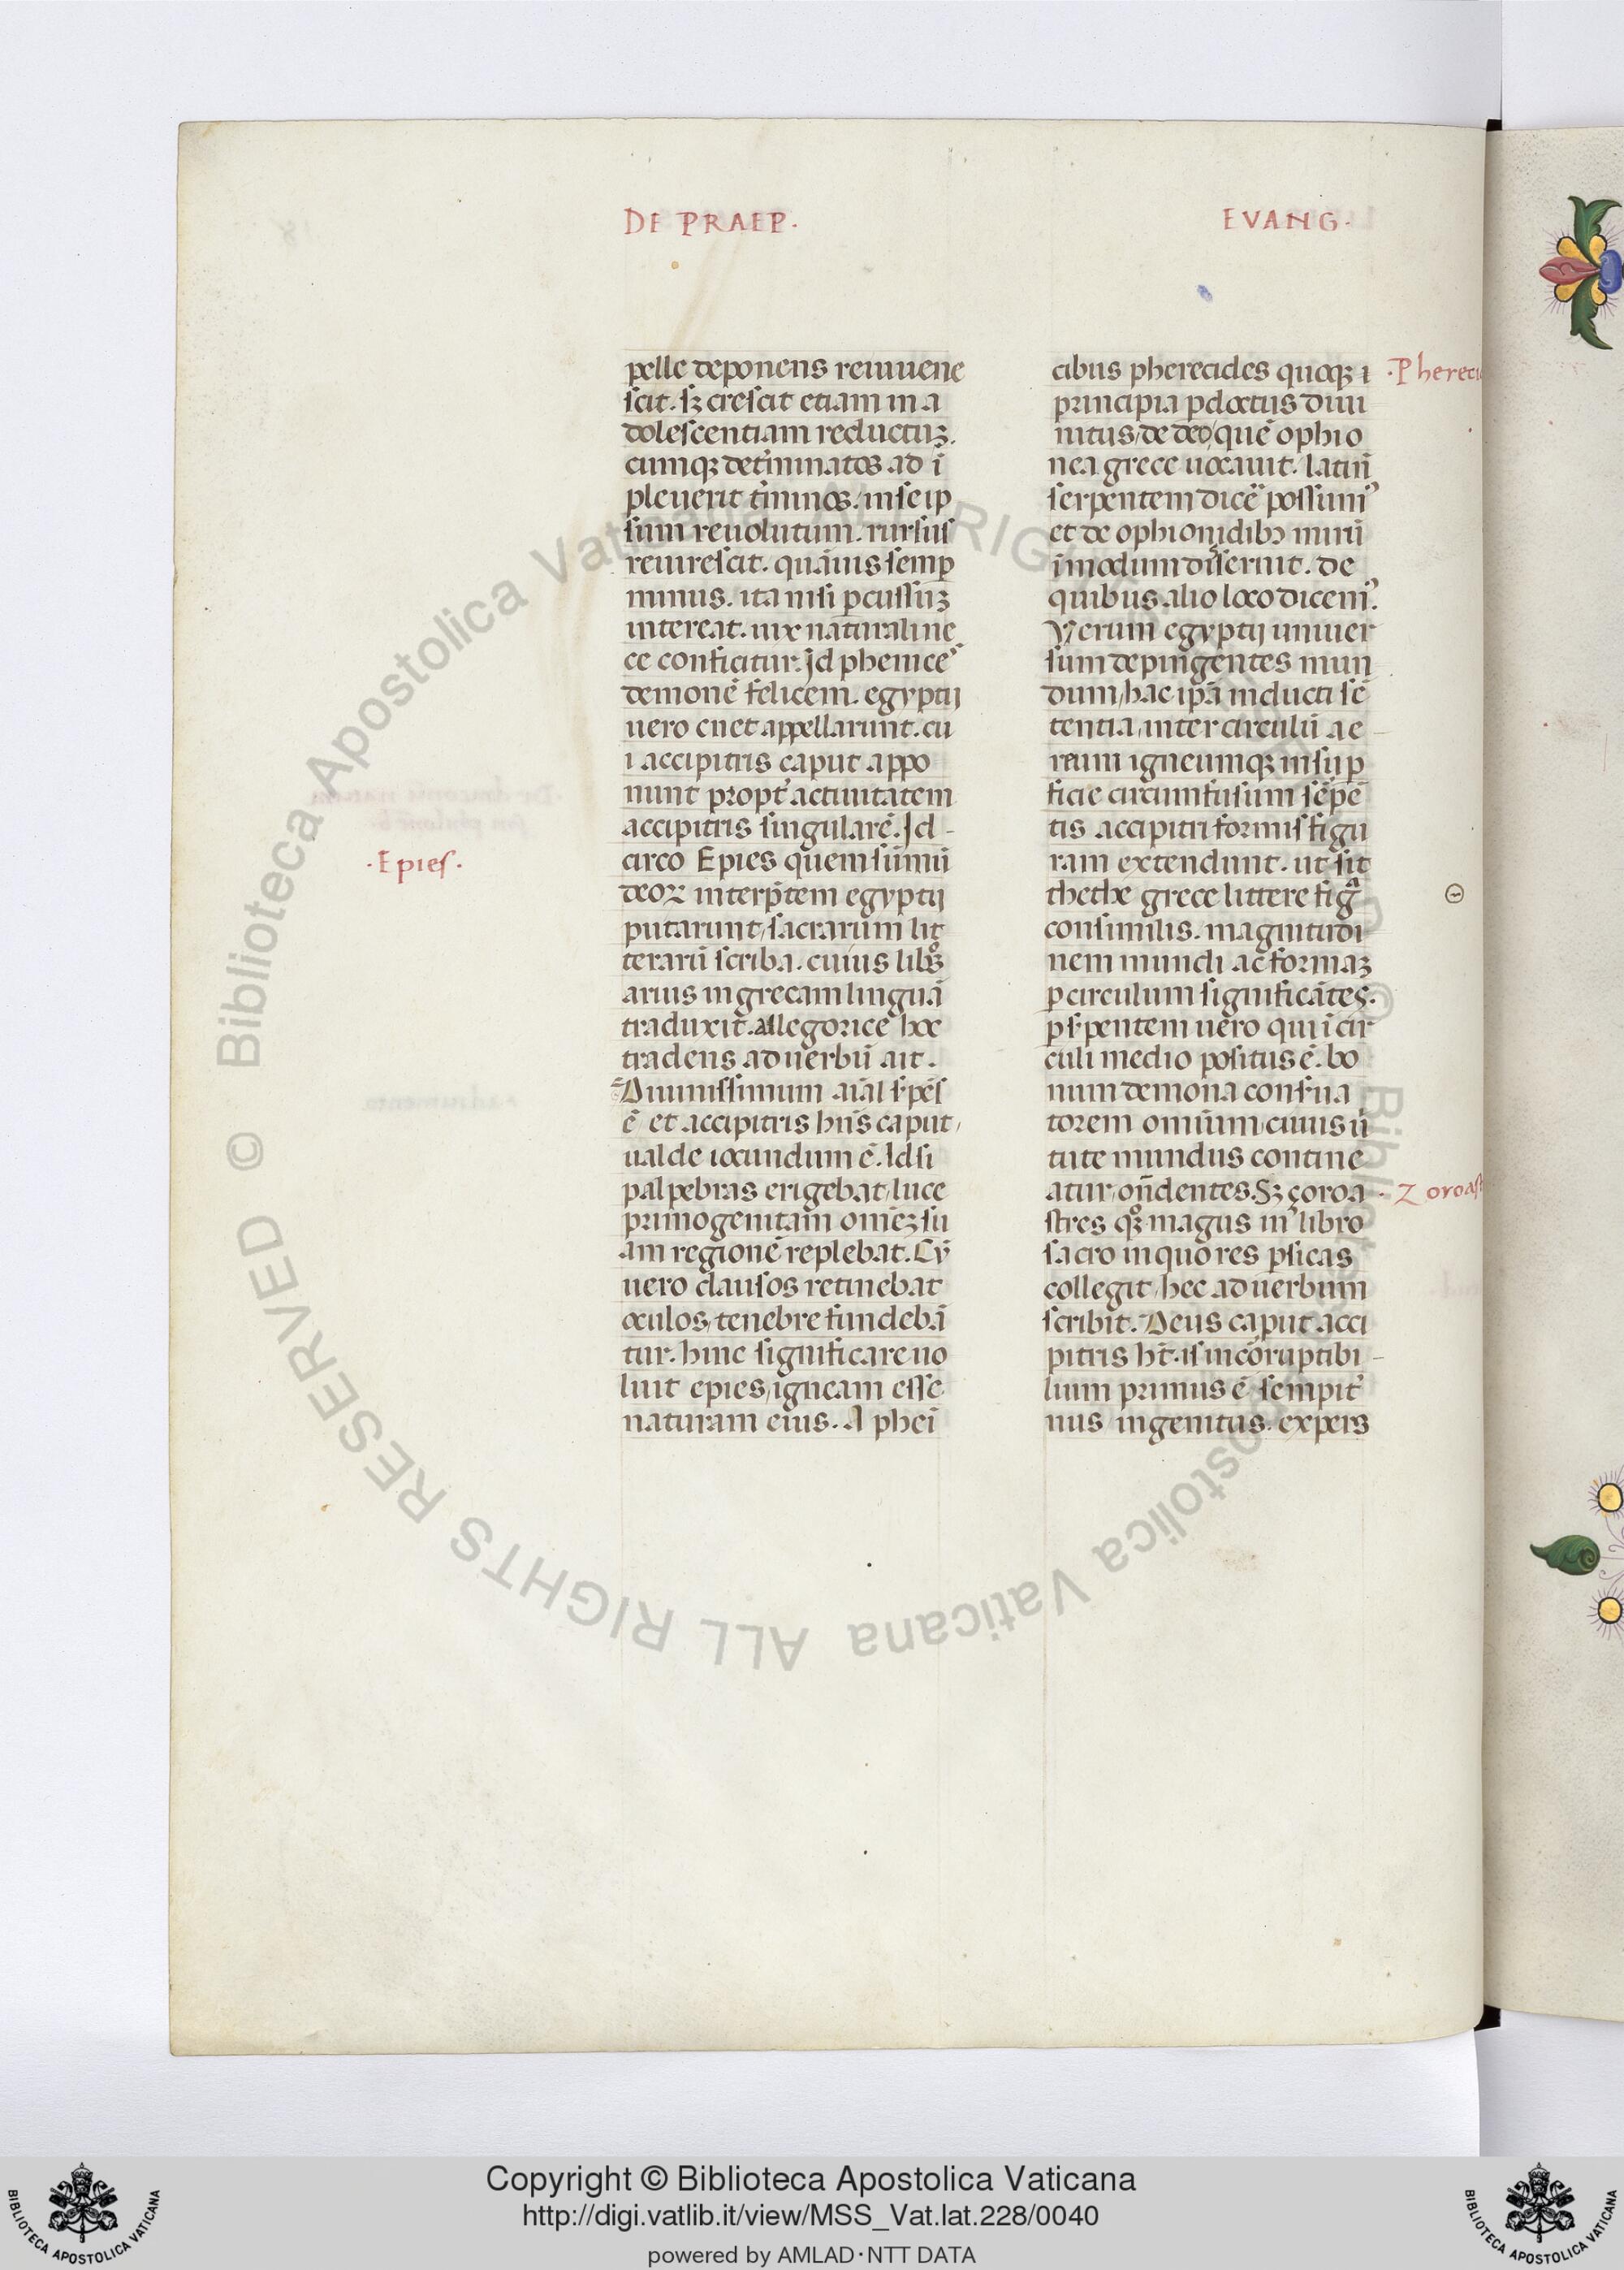 DE PRAEP.
EVANG.
pelle deponens reiuuene
scit. sꝫ crescit etiam in a
dolescentiam reductuꝫ.
cumqꝫ det̃minatos ad ĩ
pleuerit t̃minos. in se ip
sum reuolutum. rursus
reuirescit. quãuis semꝑ
minus. ita nisi ꝑcussuꝫ
intereat. uix naturali ne
ce conficitur. Id phenices
demonẽ felicem. egyptij
uero cnet appellarunt. cu
i accipitris caput appo
nunt propt̃ actiuitatem
accipitris singularẽ. Id-
circo Epies quem sũmũ
deoꝝ interp̃tem egyptij
putarunt, sacrarum lit
terarũ scriba. cuius libros
arius in grecam linguã
traduxit. allegorice hoc
tradens ad uerbũ ait.
Diuinissimum aĩal s̃pẽs
ẽ et accipitris hñs caput,
ualde iocundum ẽ. Id si
palpebras erigebat, luce
primogenitam omẽꝫ su
am regionẽ replebat. Cũ
uero clausos retinebat
oculos, tenebre fundebã
tur. hinc significare uo
luit epies, igneam esse
naturam eius. A phei
·Epies·
cibus pherecides quoqꝫ i
principia ꝑdoctus diui
nitus, de deo, quẽ ophio
nea grece uocauit. latin̄
serpentem dicẽ possumꝰ
et de ophionidibꝫ mirũ
ĩmodum disseruit. de
quibus alio loco dicemꝰ.
Verum egyptij uniuer
sum depingentes mun
dum, hac ip̃a inducti sẽ
tentia, inter circulũ ae-
reum igneumqꝫ in suꝑ
ficie circumfusum sẽpẽ
tis accipitriformis figu
ram extendunt. ut sit
thethe grece littere figͣ
consimilis. magnitudi
nem mundi ac formaꝫ
ꝑ circulum significãtes.
ꝑ s̃pentem uero qui ĩ cir
culi medio positus ẽ. bo
num demona cons̃ua
torem omnium, cuius ũ
tute mundus contine
atur, oñdentes. Sꝫ çoroa
stres qͦꝫ magus in libro
sacro in quo res ꝑsicas
collegit, hec ad uerbum
scribit. Deus caput acci
pitris ht̃. is incõruptibi-
lium primus ẽ sempit̃
nus ingenitus. expers
·Phereci
Θ
· Zoroast
© Biblioteca Apostolica Vaticana ALL RIGHTS RESERVED
Copyright © Biblioteca Apostolica Vaticana
http://digi.vatlib.it/view/MSS_Vat.lat.228/0040
powered by AMLAD·NTT DATA
BIBLIOTECA APOSTOLICA VATICANA
BIBLIOTECA APOSTOLICA VATICANA